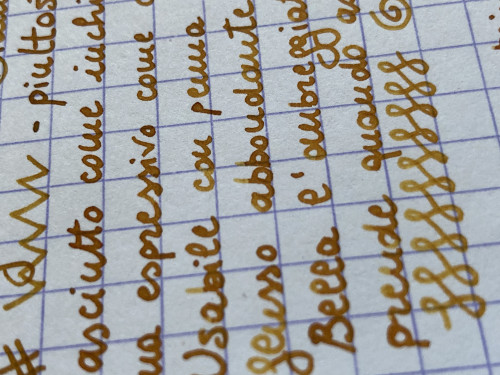 # - piuttos
asciutto come inchi
ma espressivo come
Usabile con penna
flusso abbondante
Bella l'ombreggiat
prende quando